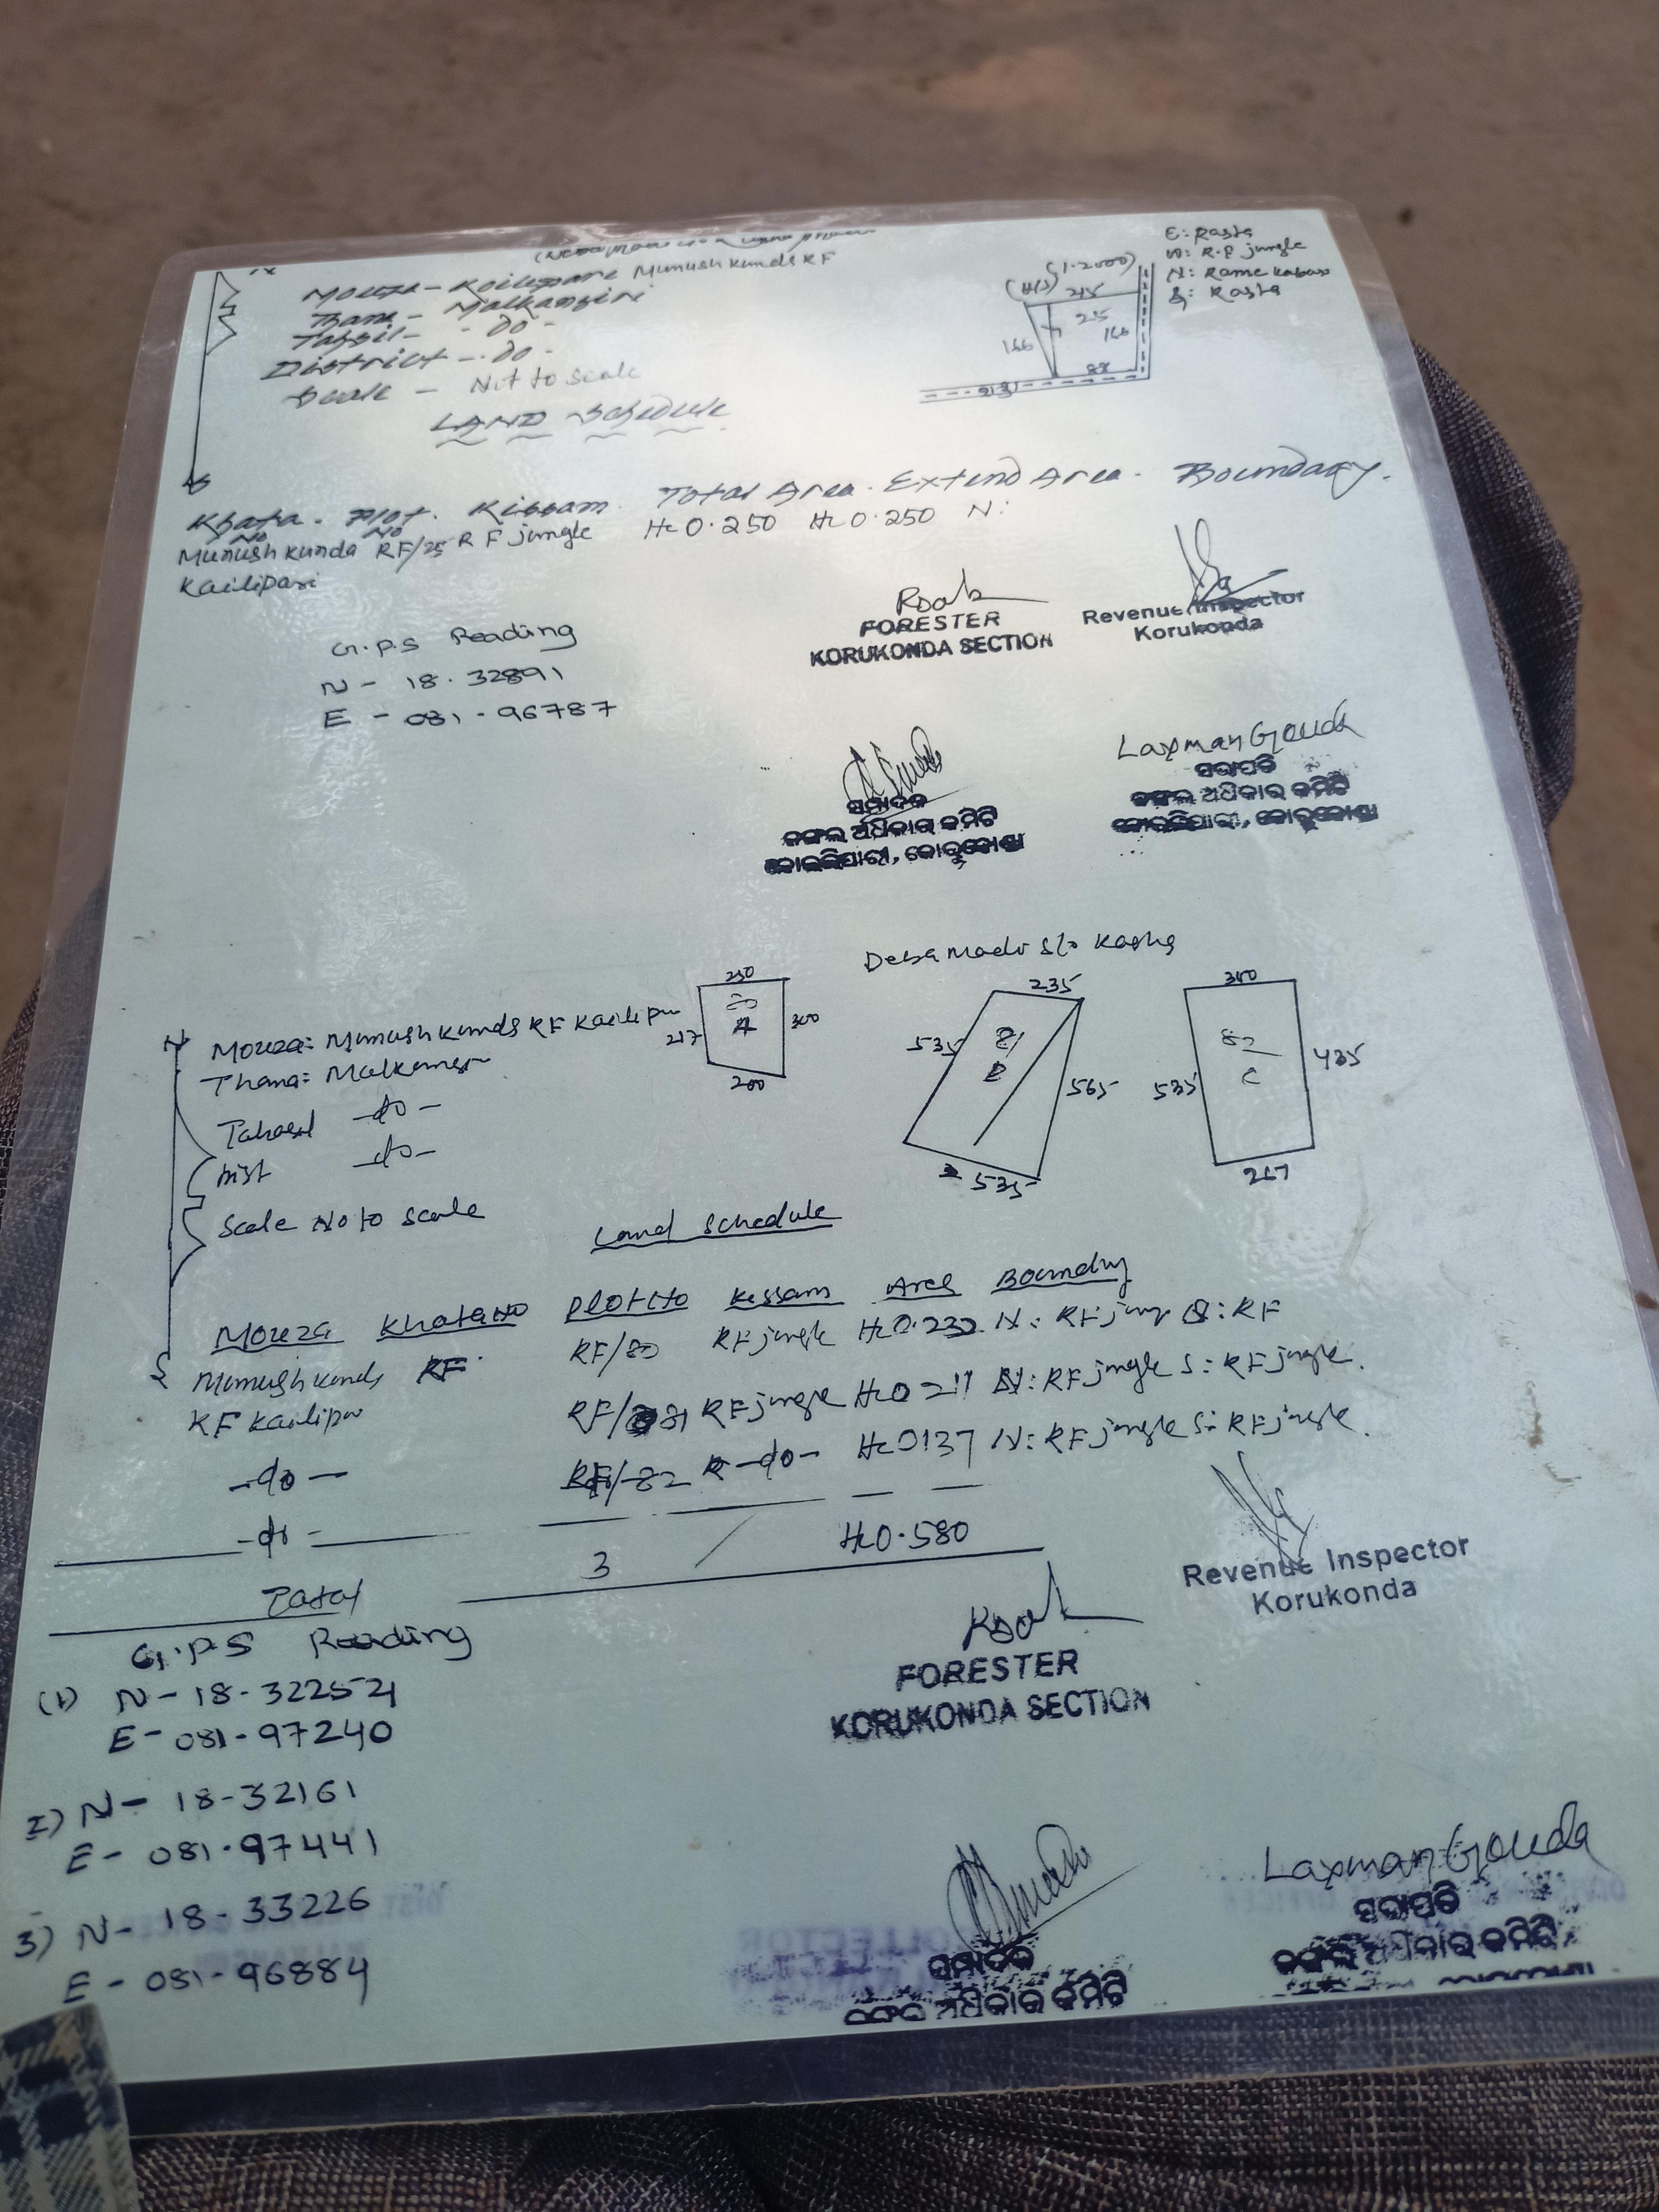 Mouza - Koilipari Munushkunda RF
Thana - Malkangiri
Tahsil - do -
District - do -
Scale - Not to scale
(1:2000)
215
25
166
166
88
E: Rasta
W: R.F jungle
S: Rasta
LAND Schedule
Khata No. Plot No. Kissam. Total Area. Extend Area. Boundary.
Munush kunda RF/25 RF jungle Hc 0.250 Hc 0.250 N:
Kailipari
G.P.S Reading
N - 18.32891
E - 081-96787
FORESTER
KORUKONDA SECTION
Revenue Inspector
Korukonda
Laxman Gouda
ସମ୍ପାଦକ
ଜଙ୍ଗଲ ଅଧିକାର କମିଟି
କୋଇଲିପାରୀ, କୋରୁକୋଣ୍ଡା
ସଭାପତି
ଜଙ୍ଗଲ ଅଧିକାର କମିଟି
କୋଇଲିପାରୀ, କୋରୁକୋଣ୍ଡା
Deba Madi S/o Kasha
N
S
Mouza: Munushkunda RF Kailipari
Thana: Malkangiri
Tahasil -do-
Dist -do-
Scale No to scale
250
80
A
217
300
200
235
81
B
535
565
535
300
82
C
535
435
267
Land Schedule
Mouza Khata No Plot No Kissam Area Boundry
Munushkunda RF RF/80 RF jungle Hc 0.232 N: RF jung S: RF
RF Kailipari RF/81 RF jungle Hc 0 211 N: RF jungle S: RF jungle.
-do- RF/-82 -do- Hc 0137 N: RF jungle S: RF jungle.
-do-
Total 3 / Hc 0.580
G.P.S Reading
(1) N - 18-32252
E - 081-97240
2) N - 18-32161
E - 081.97441
3) N - 18-33226
E - 081-96884
FORESTER
KORUKONDA SECTION
Revenue Inspector
Korukonda
Laxman Gouda
ସମ୍ପାଦକ
ଜଙ୍ଗଲ ଅଧିକାର କମିଟି
ସଭାପତି
ଜଙ୍ଗଲ ଅଧିକାର କମିଟି